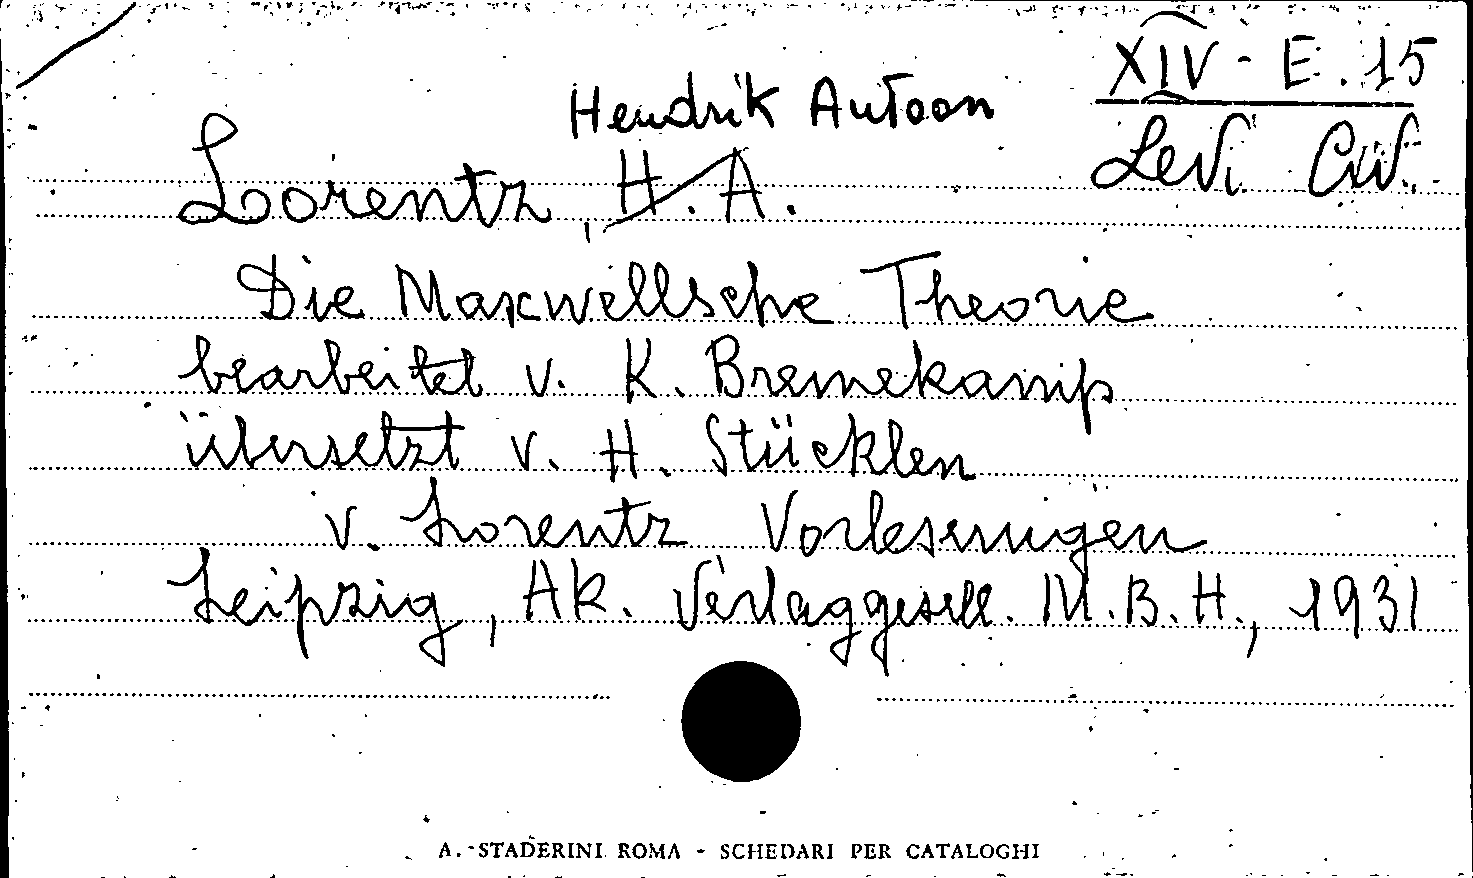 XIV - E. 15
Hendrik Antoon
Levi Civ.
Lorentz, H. A.
Die Maxwellsche Theorie
bearbeitet v. K. Bremekamp
übersetzt v. H. Stücklen
v. Lorentz Vorlesungen
Leipzig, Ak. Verlaggesell. M.B.H., 1931
A. STADERINI ROMA - SCHEDARI PER CATALOGHI